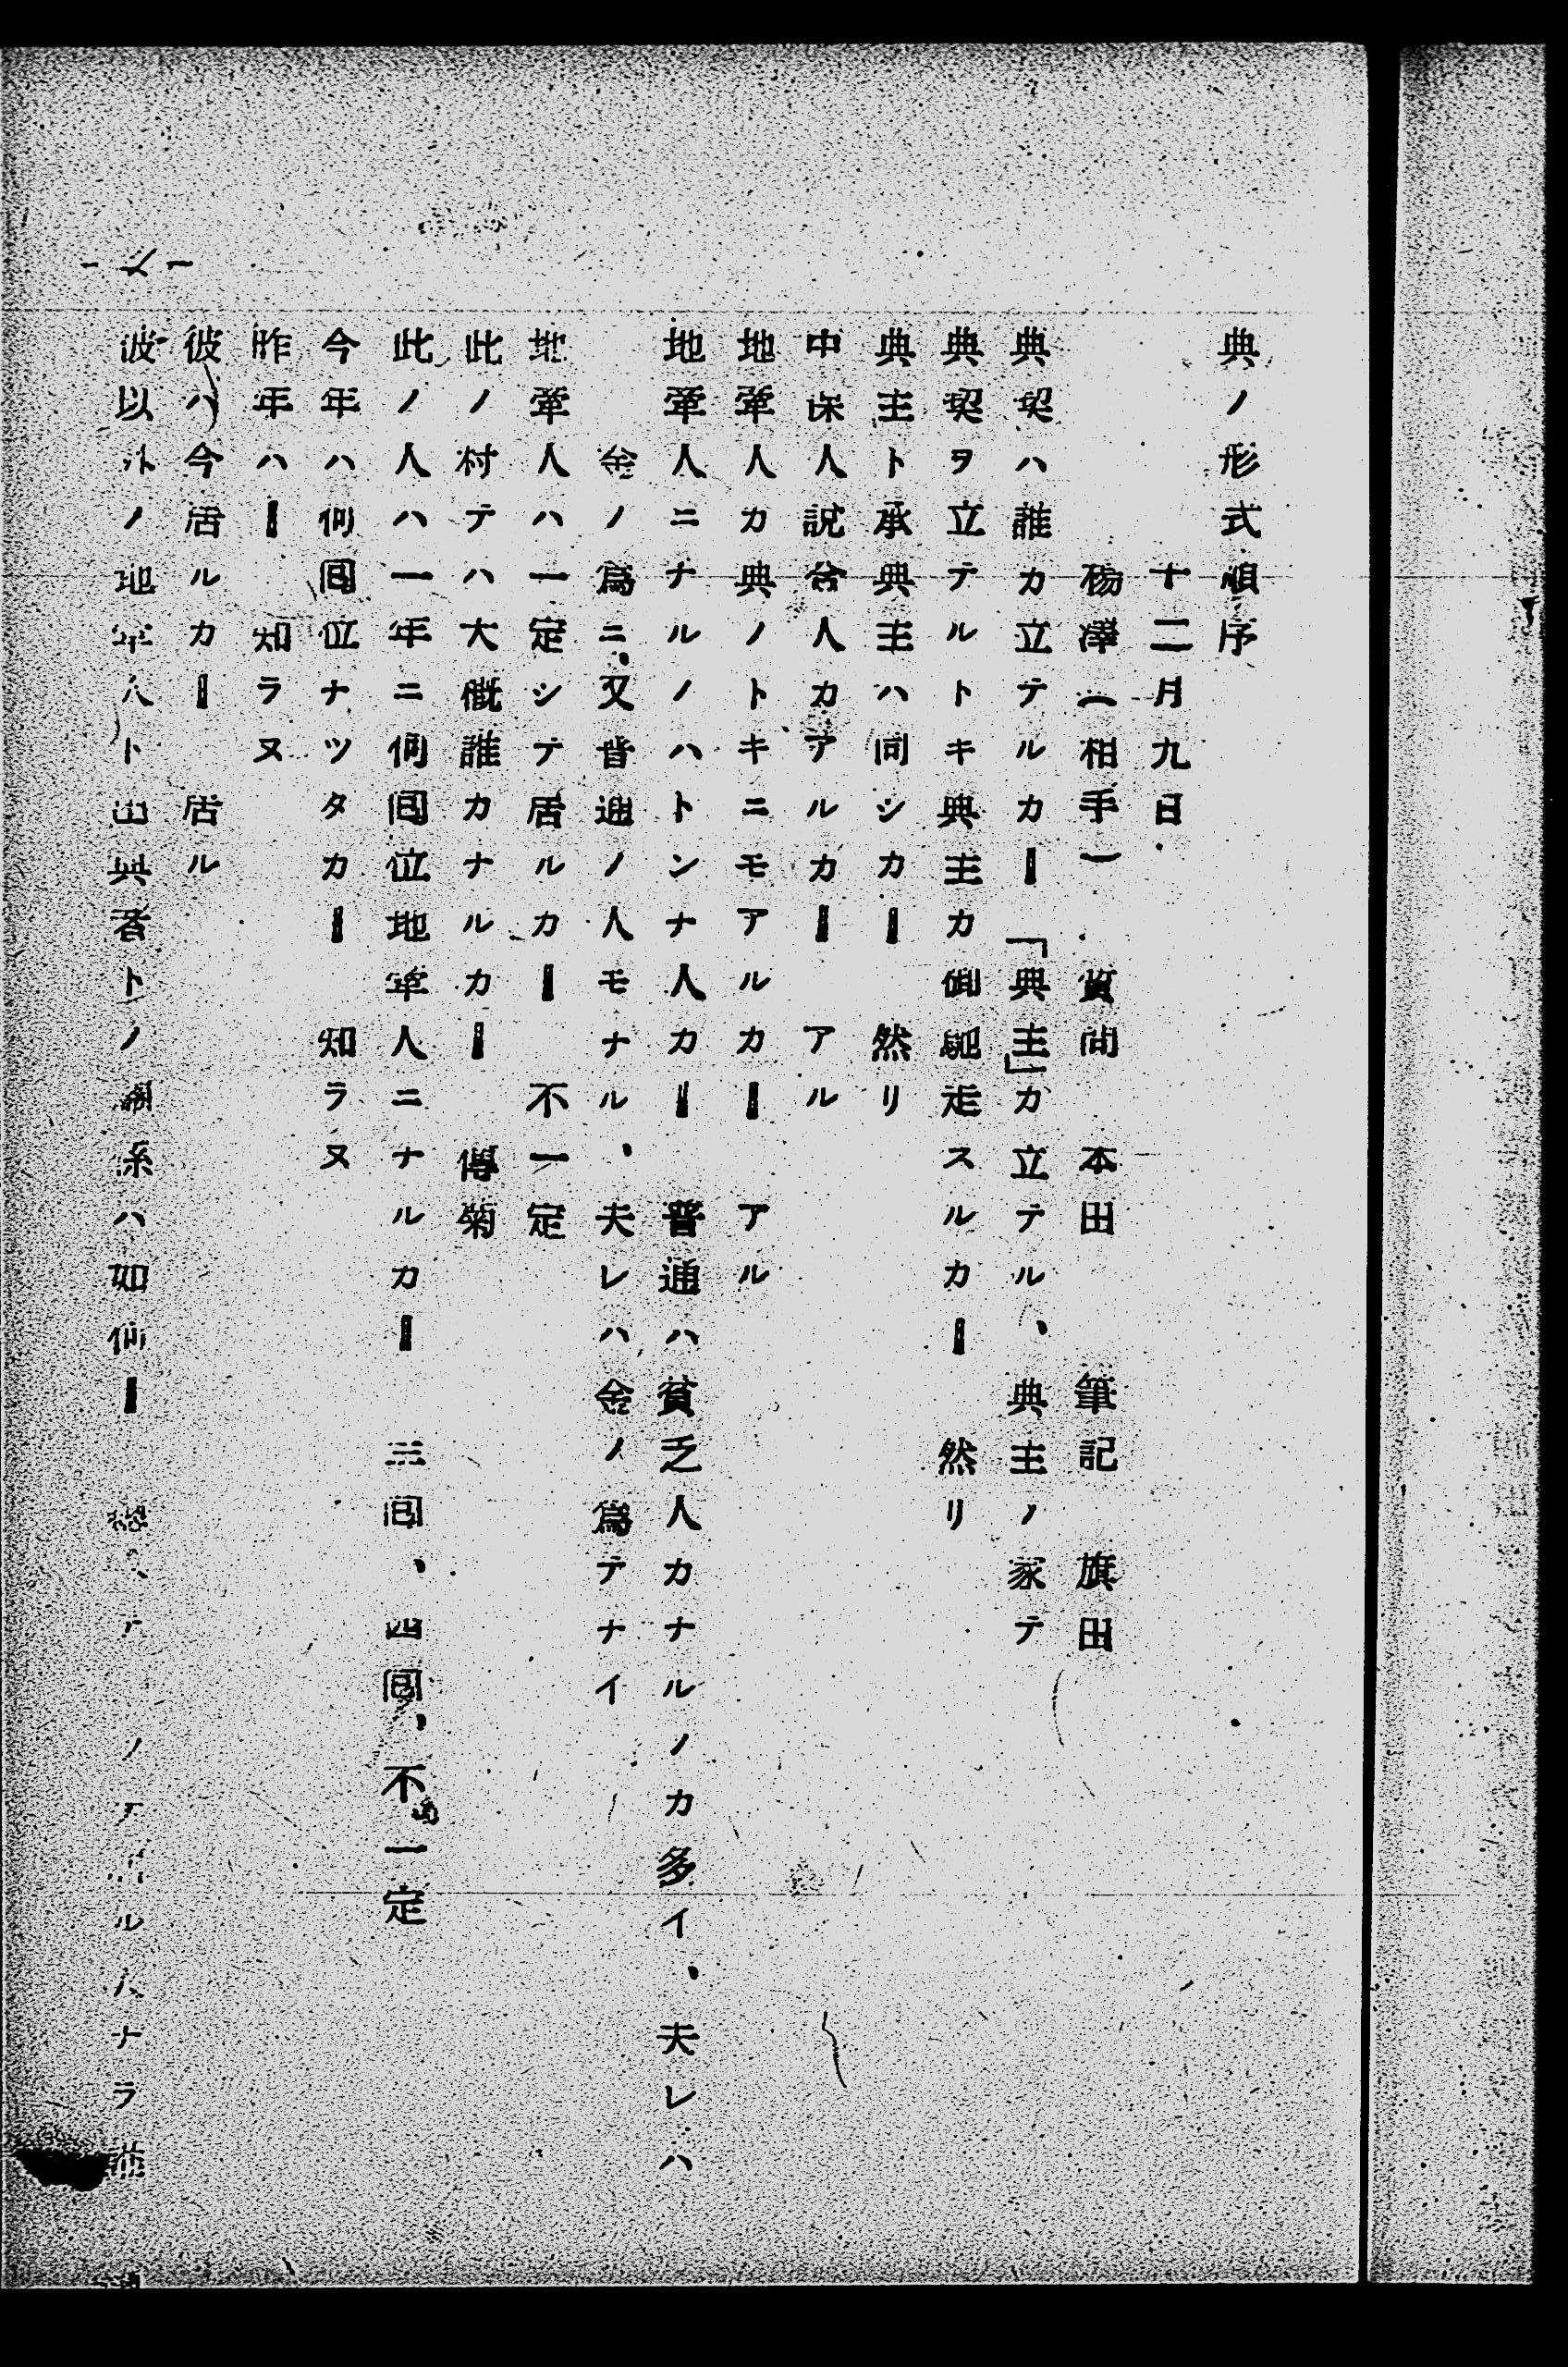 典ノ形式順序
十二月九日
楊澤（相手） 質問 本田 筆記 旗田
典契ハ誰カ立テルカー「典主」カ立テル、典主ノ家テ
典契ヲ立テルトキ典主カ御馳走スルカー 然リ
典主ト承典主ハ同シカー 然リ
中保人説合人カアルカー アル
地牽人カ典ノトキニモアルカー アル
地牽人ニナルノハトンナ人カー 普通ハ貧乏人カナルノカ多イ、夫レハ
金ノ爲ニ、又普通ノ人モナル、夫レハ金ノ爲テナイ
地牽人ハ一定シテ居ルカー 不一定
此ノ村テハ大慨誰カナルカー 傅菊
此ノ人ハ一年ニ何囘位地牽人ニナルカー 三囘、四囘、不一定
今年ハ何囘位ナツタカー 知ラヌ
昨年ハー 知ラヌ
彼ハ今居ルカー 居ル
彼以外ノ地牽人ト出典者トノ關係ハ如何ー
-1-